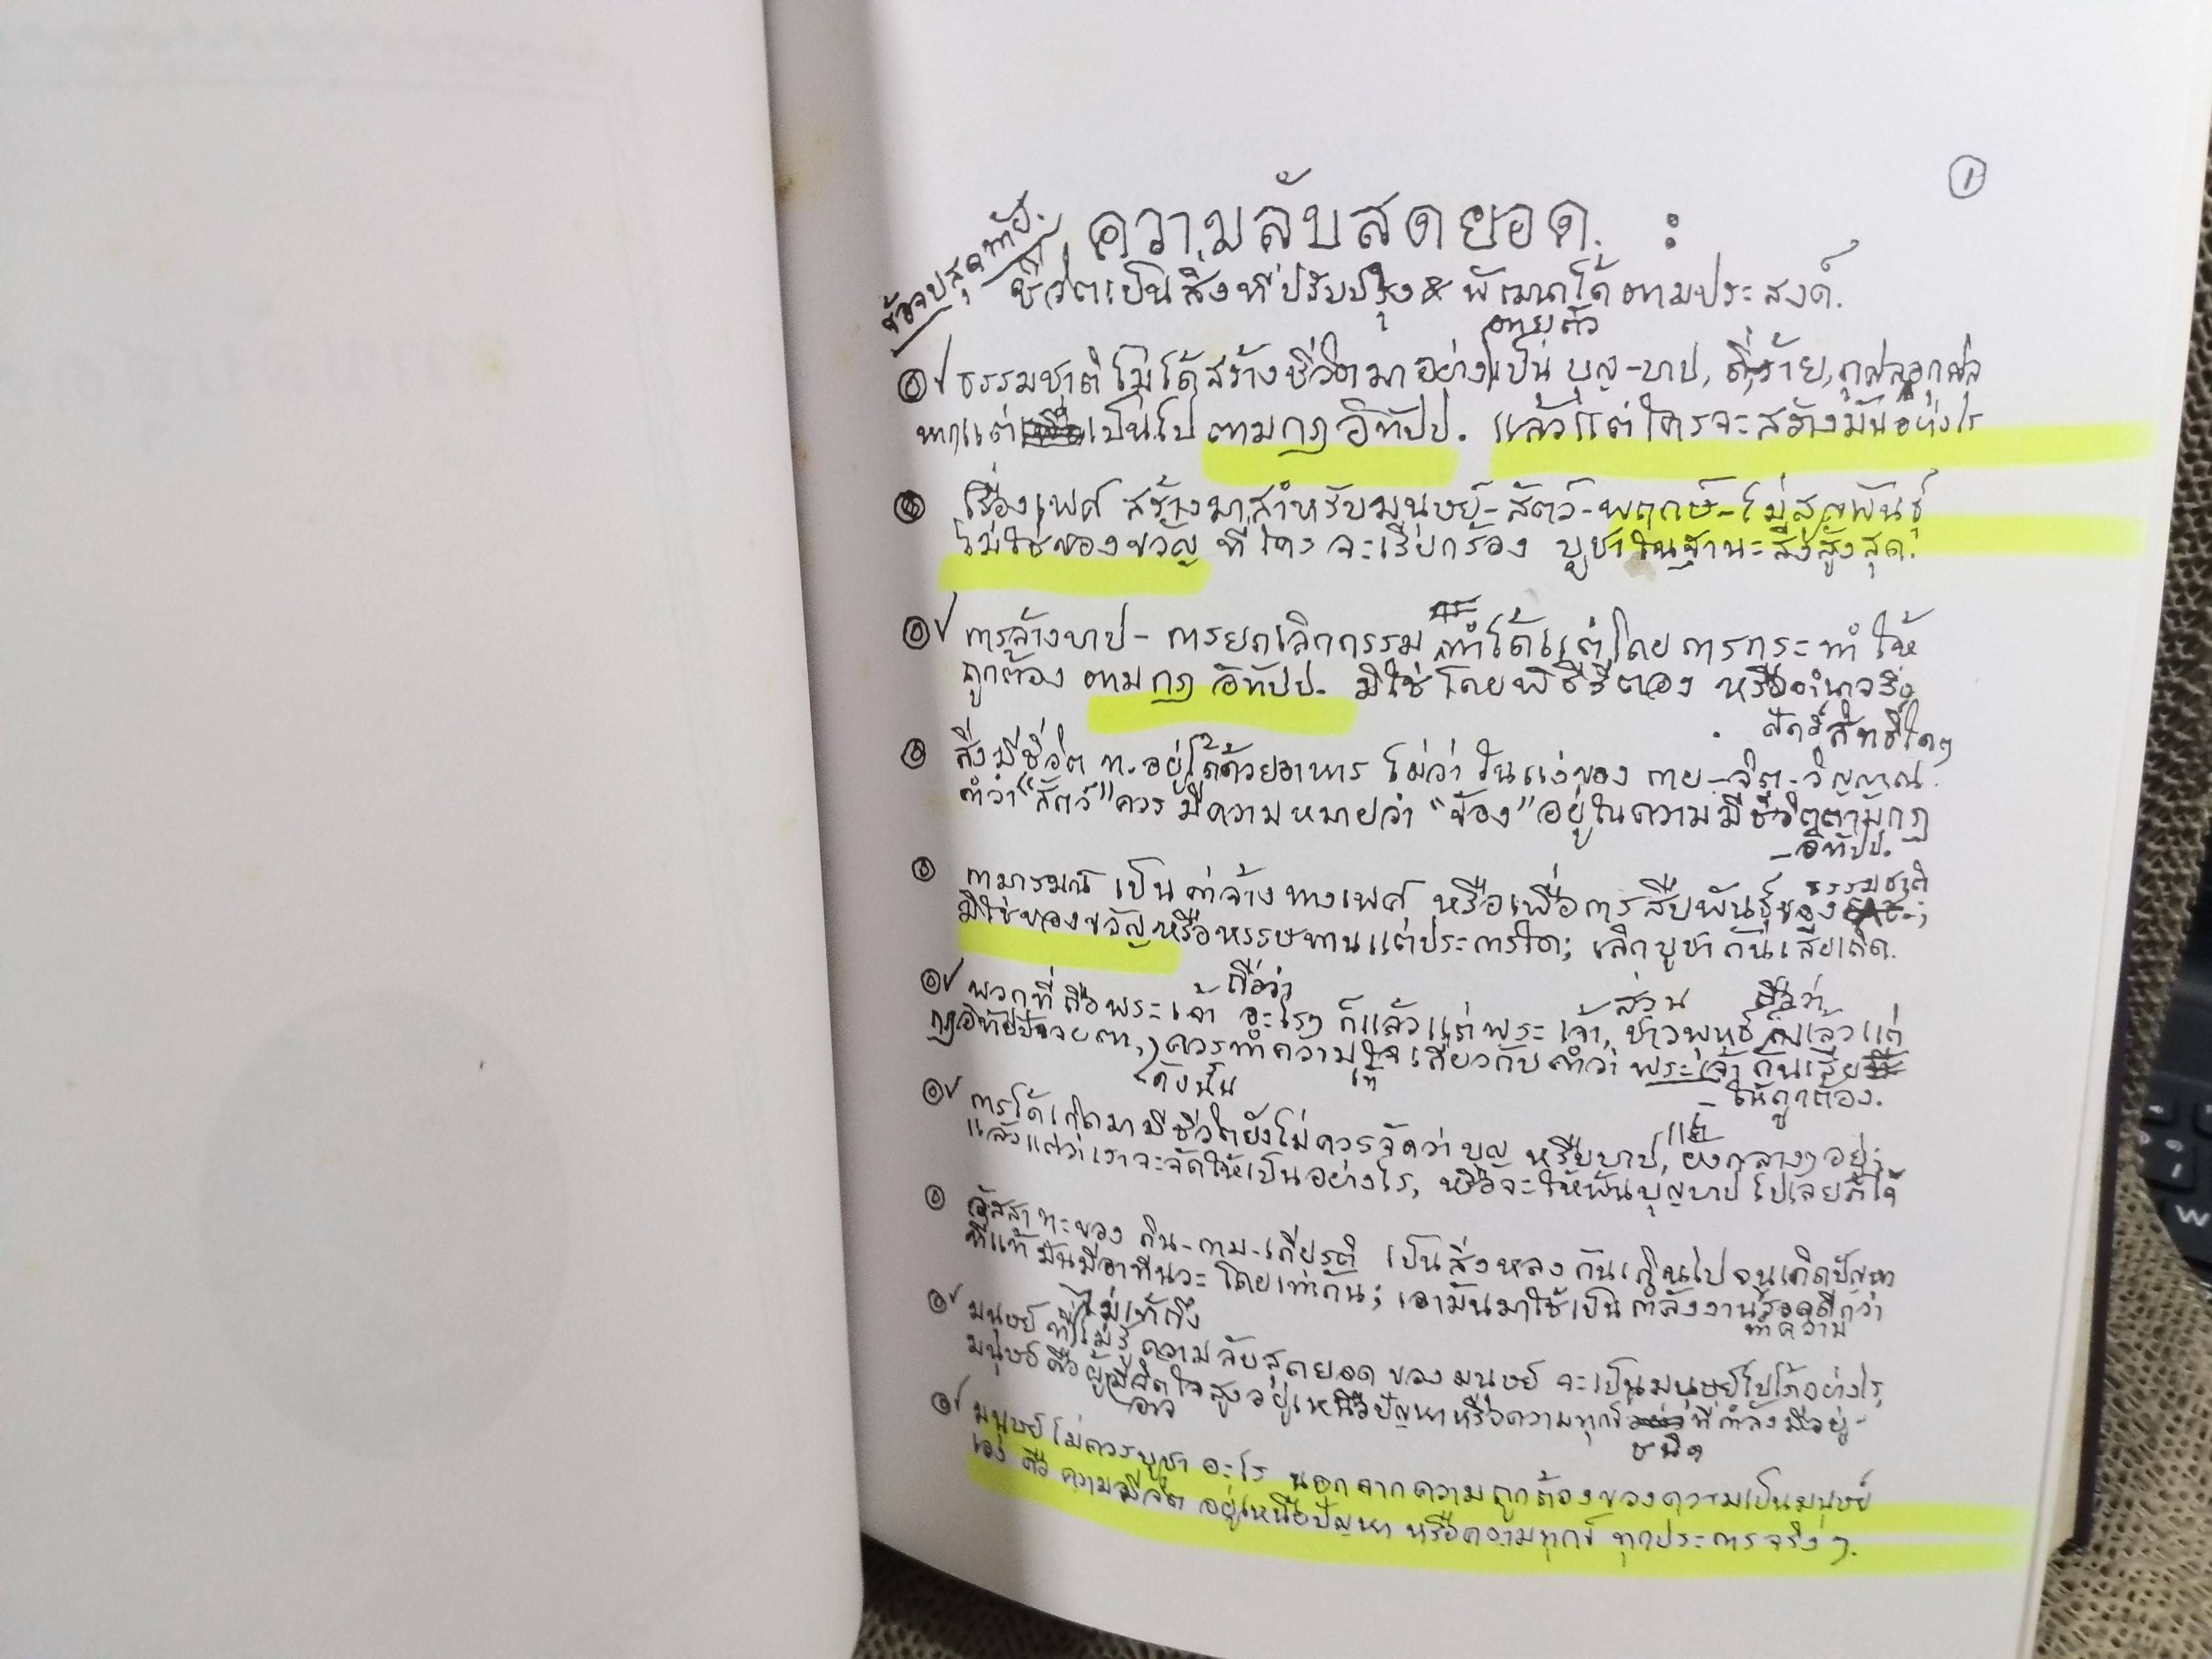 ①
ความลับสุดยอด. :
ข้อจบสุดท้าย.
ชีวิตเป็นสิ่งที่ปรับปรุง & พัฒนาได้ตามประสงค์.
ตายตัว
ธรรมชาติไม่ได้สร้างชีวิตมาอย่างเป็น บุญ-บาป, ดี-ร้าย, กุศลอกุศล
หากแต่เป็นไปตามกฎอิทัปป. แล้วแต่ใครจะสร้างมันอย่างไร
เรื่องเพศ สร้างมาสำหรับมนุษย์-สัตว์-พฤกษ์-ไม่สูญพันธุ์
ไม่ใช่ของขวัญ ที่ใครจะเรียกร้อง บูชาในฐานะสิ่งสูงสุด.
การล้างบาป - การยกเลิกกรรม ทำได้แต่โดยการกระทำให้
ถูกต้อง ตามกฎอิทัปป. มิใช่โดยพิธีรีตอง หรืออำนาจสิ่ง
ศักดิ์สิทธิ์ใดๆ
สิ่งมีชีวิต จะอยู่ได้ด้วยอาหาร ไม่ว่าในแง่ของ กาย-จิต-วิญญาณ.
คำว่า "สัตว์" ควรมีความหมายว่า "ข้อง" อยู่ในความมีชีวิตตามกฎ
- อิทัปป.
ธรรมชาติ
กามารมณ์ เป็นค่าจ้างทางเพศ หรือเพื่อการสืบพันธุ์ของ ;
มิใช่ของขวัญหรือหรรษทานแต่ประการใด; เลิกบูชากันเสียเถิด.
ถือว่า ส่วน ถือว่า
พวกที่ถือพระเจ้า อะไรๆ ก็แล้วแต่พระเจ้า, ชาวพุทธ ก็แล้วแต่
กฎอิทัปปัจจยตา, ควรทำความเข้าใจเกี่ยวกับคำว่า พระเจ้า กันเสีย
ดังนั้น
- ให้ถูกต้อง.
การได้เกิดมามีชีวิตยังไม่ควรจัดว่า บุญ หรือบาป, ยังกลางๆ อยู่;
แล้วแต่ว่าเราจะจัดให้เป็นอย่างไร, หรือจะให้พ้นบุญบาปไปเลยก็ได้
อัสสาทะของ กิน-กาม-เกียรติ เป็นสิ่งหลงกันเกินไปจนเกิดปัญหา
ที่แท้มันมีอาทีนวะโดยเท่ากัน; เอามันมาใช้เป็นกำลังงานรอดดีกว่า
ไม่เข้าถึง ทำความ
มนุษย์ที่ไม่รู้ความลับสุดยอดของมนุษย์ จะเป็นมนุษย์ไปได้อย่างไร
มนุษย์คือผู้มีจิตใจสูงอยู่เหนือปัญหาหรือความทุกข์ที่กำลังมีอยู่-
อาจ ชนิด
มนุษย์ไม่ควรบูชาอะไร นอกจากความถูกต้องของความเป็นมนุษย์
เอง คือ ความมีจิต อยู่เหนือปัญหา หรือความทุกข์ ทุกประการจริงๆ.
W